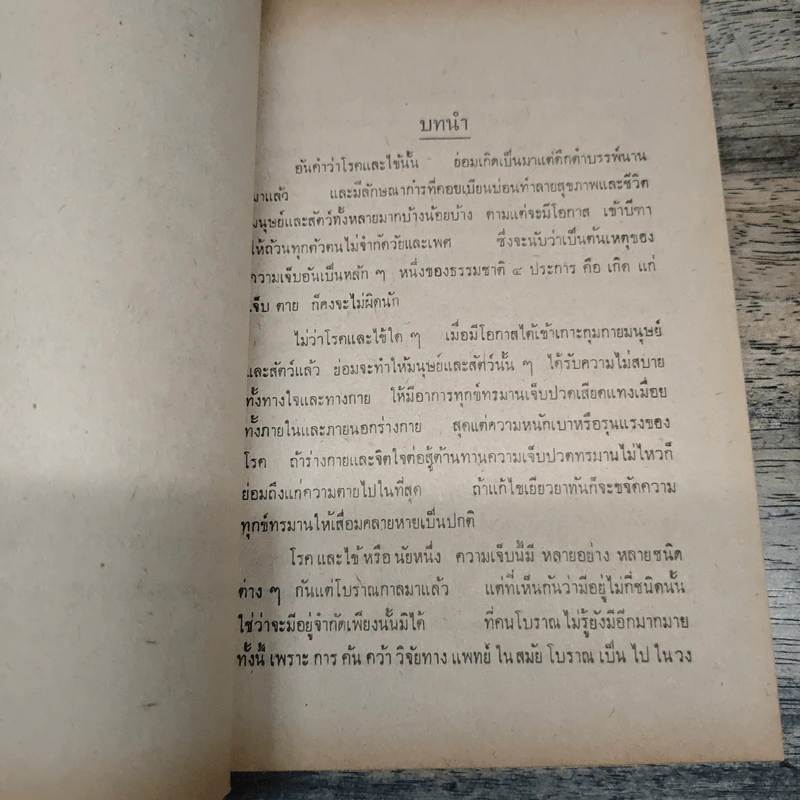 บทนำ
อันคำว่าโรคและไข้นั้น ย่อมเกิดเป็นมาแต่ดึกดำบรรพ์นาน
มาแล้ว และมีลักษณาการที่คอยเบียนบ่อนทำลายสุขภาพและชีวิต
มนุษย์และสัตว์ทั้งหลายมากบ้างน้อยบ้าง ตามแต่จะมีโอกาส เข้าบีฑา
ให้ถ้วนทุกตัวตนไม่จำกัดวัยและเพศ ซึ่งจะนับว่าเป็นต้นเหตุของ
ความเจ็บอันเป็นหลัก ๆ หนึ่งของธรรมชาติ ๔ ประการ คือ เกิด แก่
เจ็บ ตาย ก็คงจะไม่ผิดนัก
ไม่ว่าโรคและไข้ใด ๆ เมื่อมีโอกาสได้เข้าเกาะกุมกายมนุษย์
และสัตว์แล้ว ย่อมจะทำให้มนุษย์และสัตว์นั้น ๆ ได้รับความไม่สบาย
ทั้งทางใจและทางกาย ให้มีอาการทุกข์ทรมานเจ็บปวดเสียดแทงเมื่อย
ทั้งภายในและภายนอกร่างกาย สุดแต่ความหนักเบาหรือรุนแรงของ
โรค ถ้าร่างกายและจิตใจต่อสู้ต้านทานความเจ็บปวดทรมานไม่ไหวก็
ย่อมถึงแก่ความตายไปในที่สุด ถ้าแก้ไขเยียวยาทันก็จะขจัดความ
ทุกข์ทรมานให้เสื่อมคลายหายเป็นปกติ
โรค และไข้ หรือ นัยหนึ่ง ความเจ็บนี้มี หลายอย่าง หลายชนิด
ต่าง ๆ กันแต่โบราณกาลมาแล้ว แต่ที่เห็นกันว่ามีอยู่ไม่กี่ชนิดนั้น
ใช่ว่าจะมีอยู่จำกัดเพียงนั้นมิได้ ที่คนโบราณ ไม่รู้ยังมีอีกมากมาย
ทั้งนี้ เพราะ การ ค้น คว้า วิจัยทาง แพทย์ ใน สมัย โบราณ เป็น ไป ใน วง